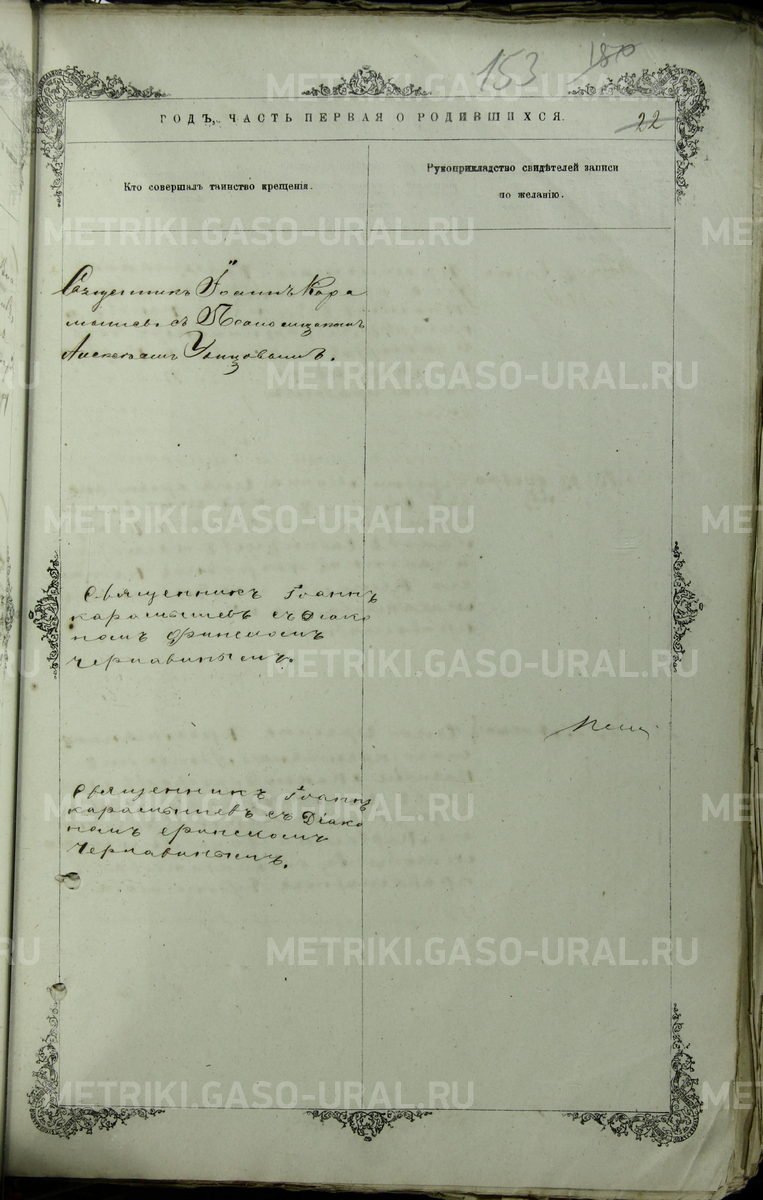 153 180
22
ГОДЪ, ЧАСТЬ ПЕРВАЯ О РОДИВШИХСЯ.
Кто совершалъ таинство крещенія.
Рукоприкладство свидѣтелей записи
по желанію.
Священникъ Іоаннъ Кара
мышевъ съ Псаломщикомъ
Алексѣемъ
Священникъ Іоаннъ
карамышевъ съ Діако
номъ
Чернавинымъ.
Священникъ Іоаннъ
карамышевъ съ Діако
номъ
Чернавинымъ.
METRIKI.GASO-URAL.RU